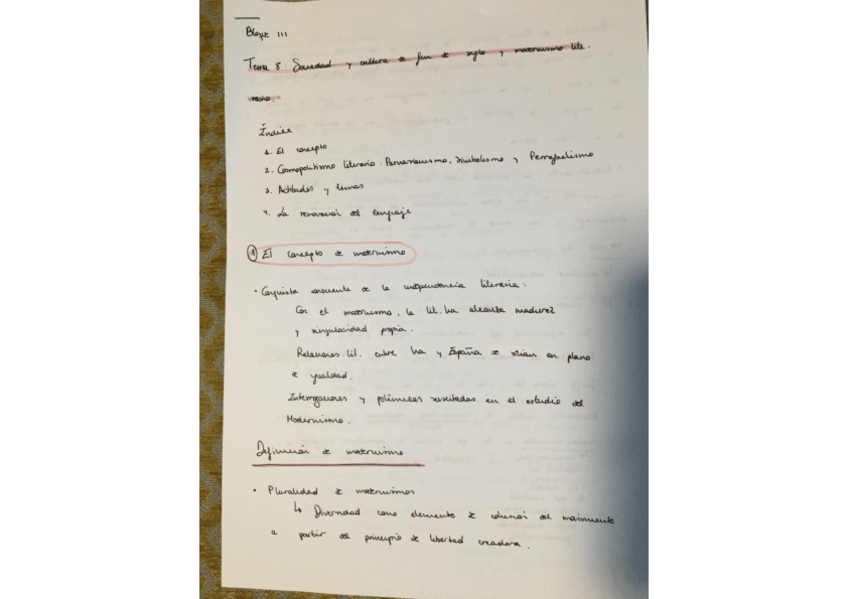 Bloque III
Tema 8: Sociedad y cultura de fin de siglo y modernismo lite-
rario.
Índice
1. El concepto
2. Cosmopolitismo literario: Parnasianismo, Simbolismo y Prerrafaelismo
3. Actitudes y temas
4. La renovación del lenguaje
① El concepto de modernismo
· Conquista de la independencia literaria:
Con el modernismo, la lit. ha alcanza madurez
y singularidad propia.
Relaciones lit. entre ha y España se en plano
de igualdad.
Interrogaciones y polémicas suscitadas en el estudio del
Modernismo.
Definición de modernismo
· Pluralidad de modernismos
↳ Diversidad como elemento de del movimiento
a partir del principio de libertad creadora.